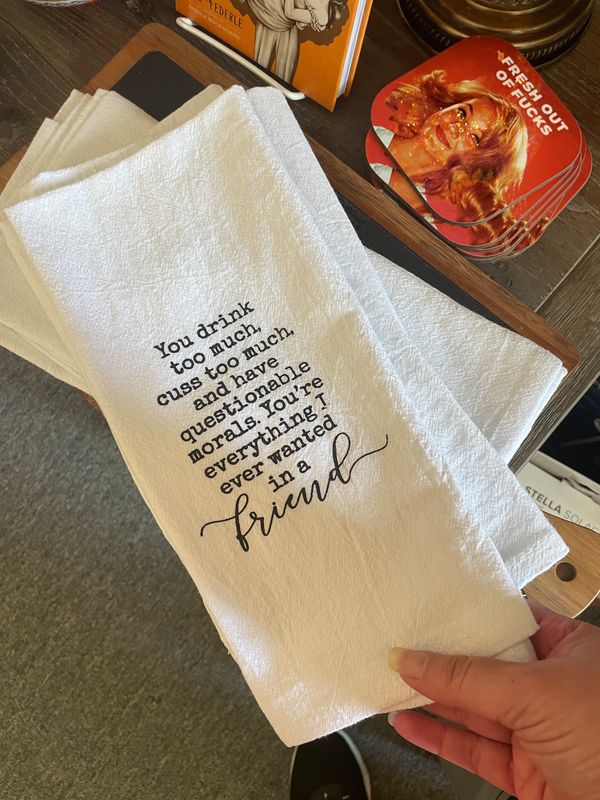 FEDERLE
FRESH OUT
OF FUCKS
You drink
too much,
cuss too much,
and have
questionable
morals. You're
everything I
ever wanted
in a
friend
STELLA